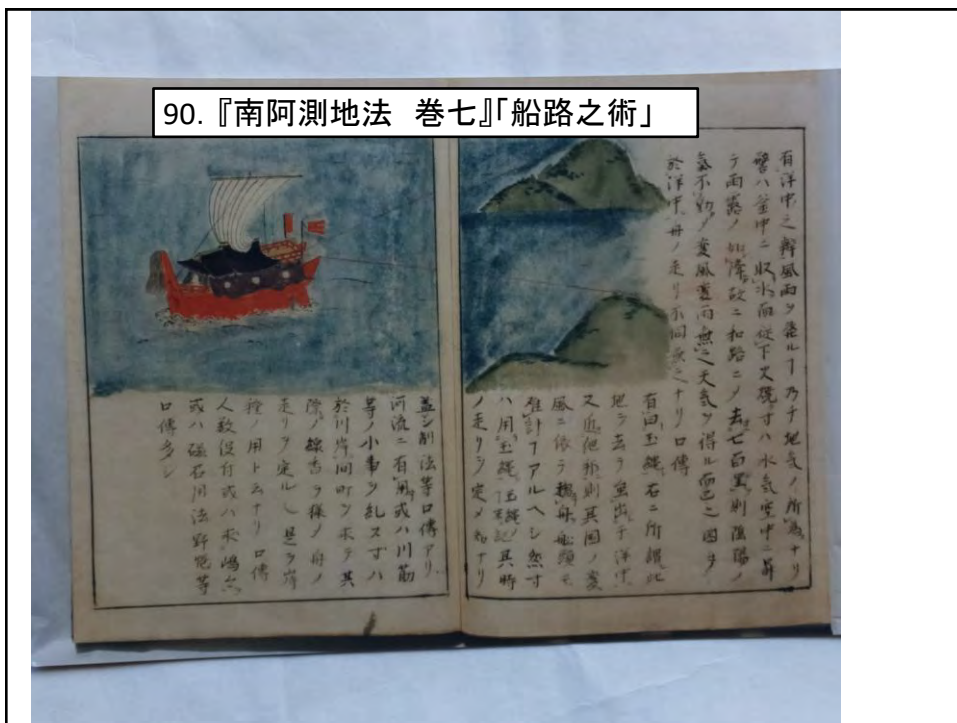 90.『南阿測地法　巻七』「船路之術」
有洋中之辨風雨ヲ發ルフ乃チ地気ノ所為ナリ
譬ハ釜中ニ収水而従下火焼寸ハ水気空中ニ昇
テ雨露ノ如降故ニ和路ニメ去七百里則陰陽ノ
氣不動メ変風変雨無之天気ヲ得ル而已之因テ
於洋中舟ノ走リ不同無之ナリ口傳
有曰玉縄石ニ所謂此
地ヲ去テ魚出于洋中
又近他邦則其国ノ変
風ニ依テ舟船頭モ
計フアルヘシ然寸
ハ用玉縄其時
ノ走リヲ定メ知ナリ
蓋シ制法等口傳アリ
河流ニ有用或ハ川筋
等ノ小事ヲ乱ス寸ハ
於川岸間町ヲ求テ其
際ノ線香ヲ様ノ舟ノ
走リヲ定ル是ヲ岸
ノ用ト云ナリ口傳
人数役付或ハ求嶋
或ハ磁石用法野帳等
口傳多シ